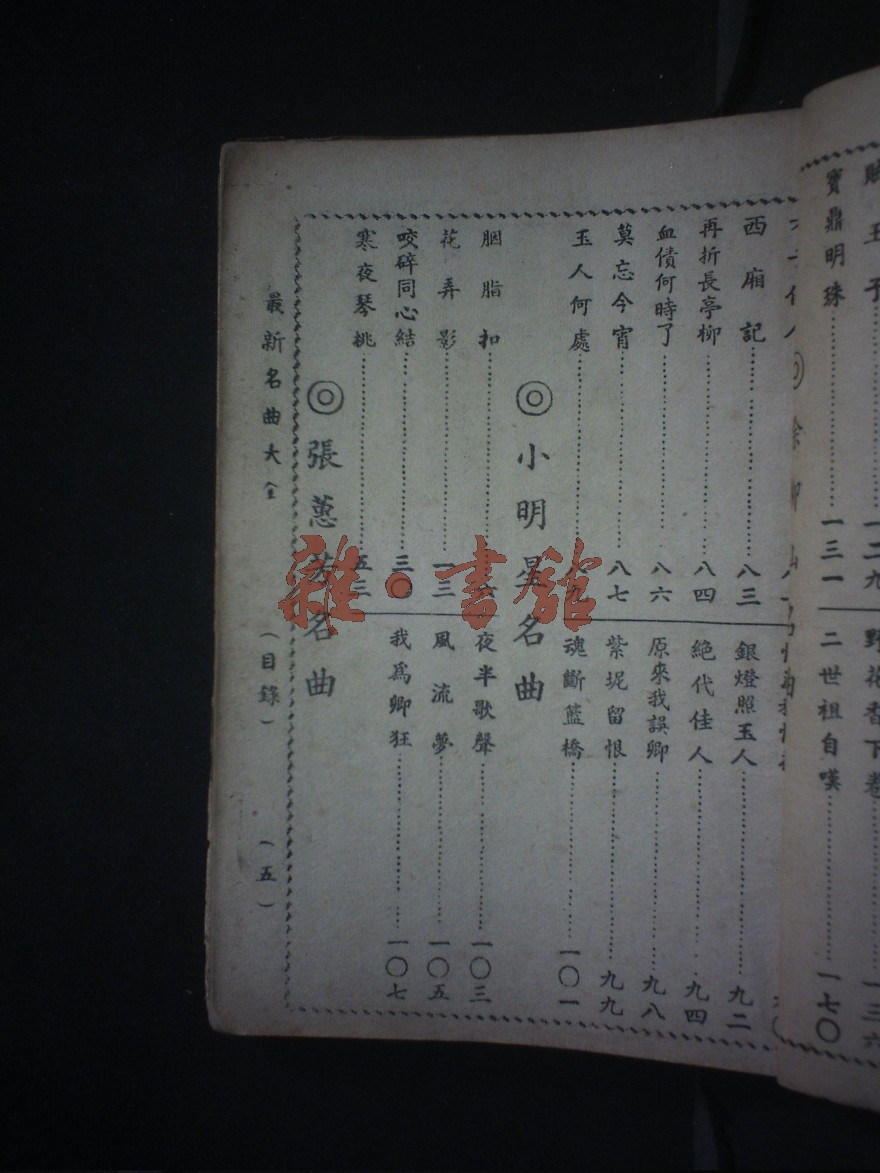 玉子
一二九
野花香下卷
一三六
寶鼎明珠
一三一
二世祖自嘆
一七〇
西廂記
八三
銀燈照玉人
九二
再折長亭柳
八四
絕代佳人
九四
血債何時了
八六
原來我誤卿
九八
莫忘今宵
八七
紫坭留恨
九九
玉人何處
八九
魂斷籃橋
一〇一
◎小明星名曲
胭脂扣
夜半歌聲
一〇三
花弄影
一三
風流夢
一〇五
咬碎同心結
三〇
我為卿狂
一〇七
寒夜琴挑
五三
◎張蕙芳名曲
最新名曲大全
(目錄)
(五)
雜·書館